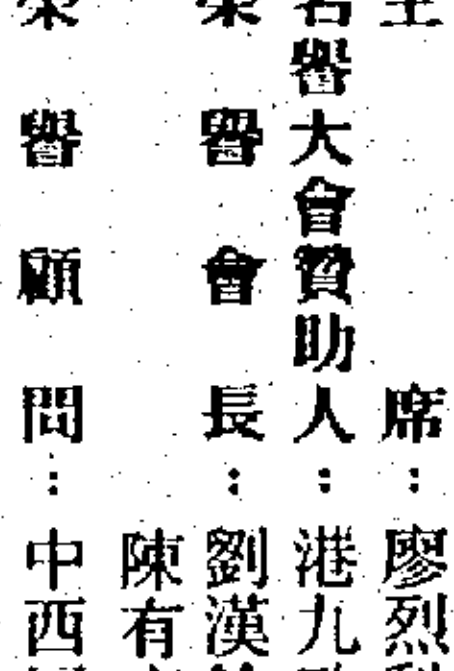 主席：廖烈
名譽大會贊助人：港九
榮譽會長：劉漢
陳有
榮譽顧問：中西